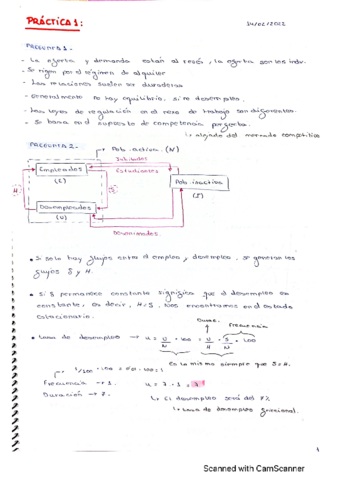 PRÁCTICA 1:
14/02/2022
PREGUNTA 1.
- La oferta y demanda están al revés, la oferta son los indv.
- Se rigen por el régimen de alquiler
- Las relaciones suelen ser duraderas
- Generalmente no hay equilibrio, si no desempleo.
- Las leyes de regulación en el resto de trabajo son diferentes.
- Se basa en el supuesto de competencia perfecta.
↳ alejado del mercado competitivo
PREGUNTA 2.
→ Pob. activa (N)
Jubilados
Empleados
(E)
Estudiantes
Pob. inactiva
(I)
H
S
Desempleados
(U)
Desanimados
• Si solo hay flujos entre el empleo y desempleo, se generan los
flujos S y H.
• Si S permanece constante significa que el desempleo es
constante, es decir, H=S. Nos encontramos en el estado
estacionario.
Durac.
Frecuencia
• Tasa de desempleo → u = U/N · 100 = U/H · S/N · 100
Es lo mismo siempre que S=H.
1/100 · 100
Frecuencia → 1.
u = 7 · 1 = 7
Duración → 7.
↳ El desempleo será del 7%
↳ tasa de desempleo friccional.
1
Scanned with CamScanner